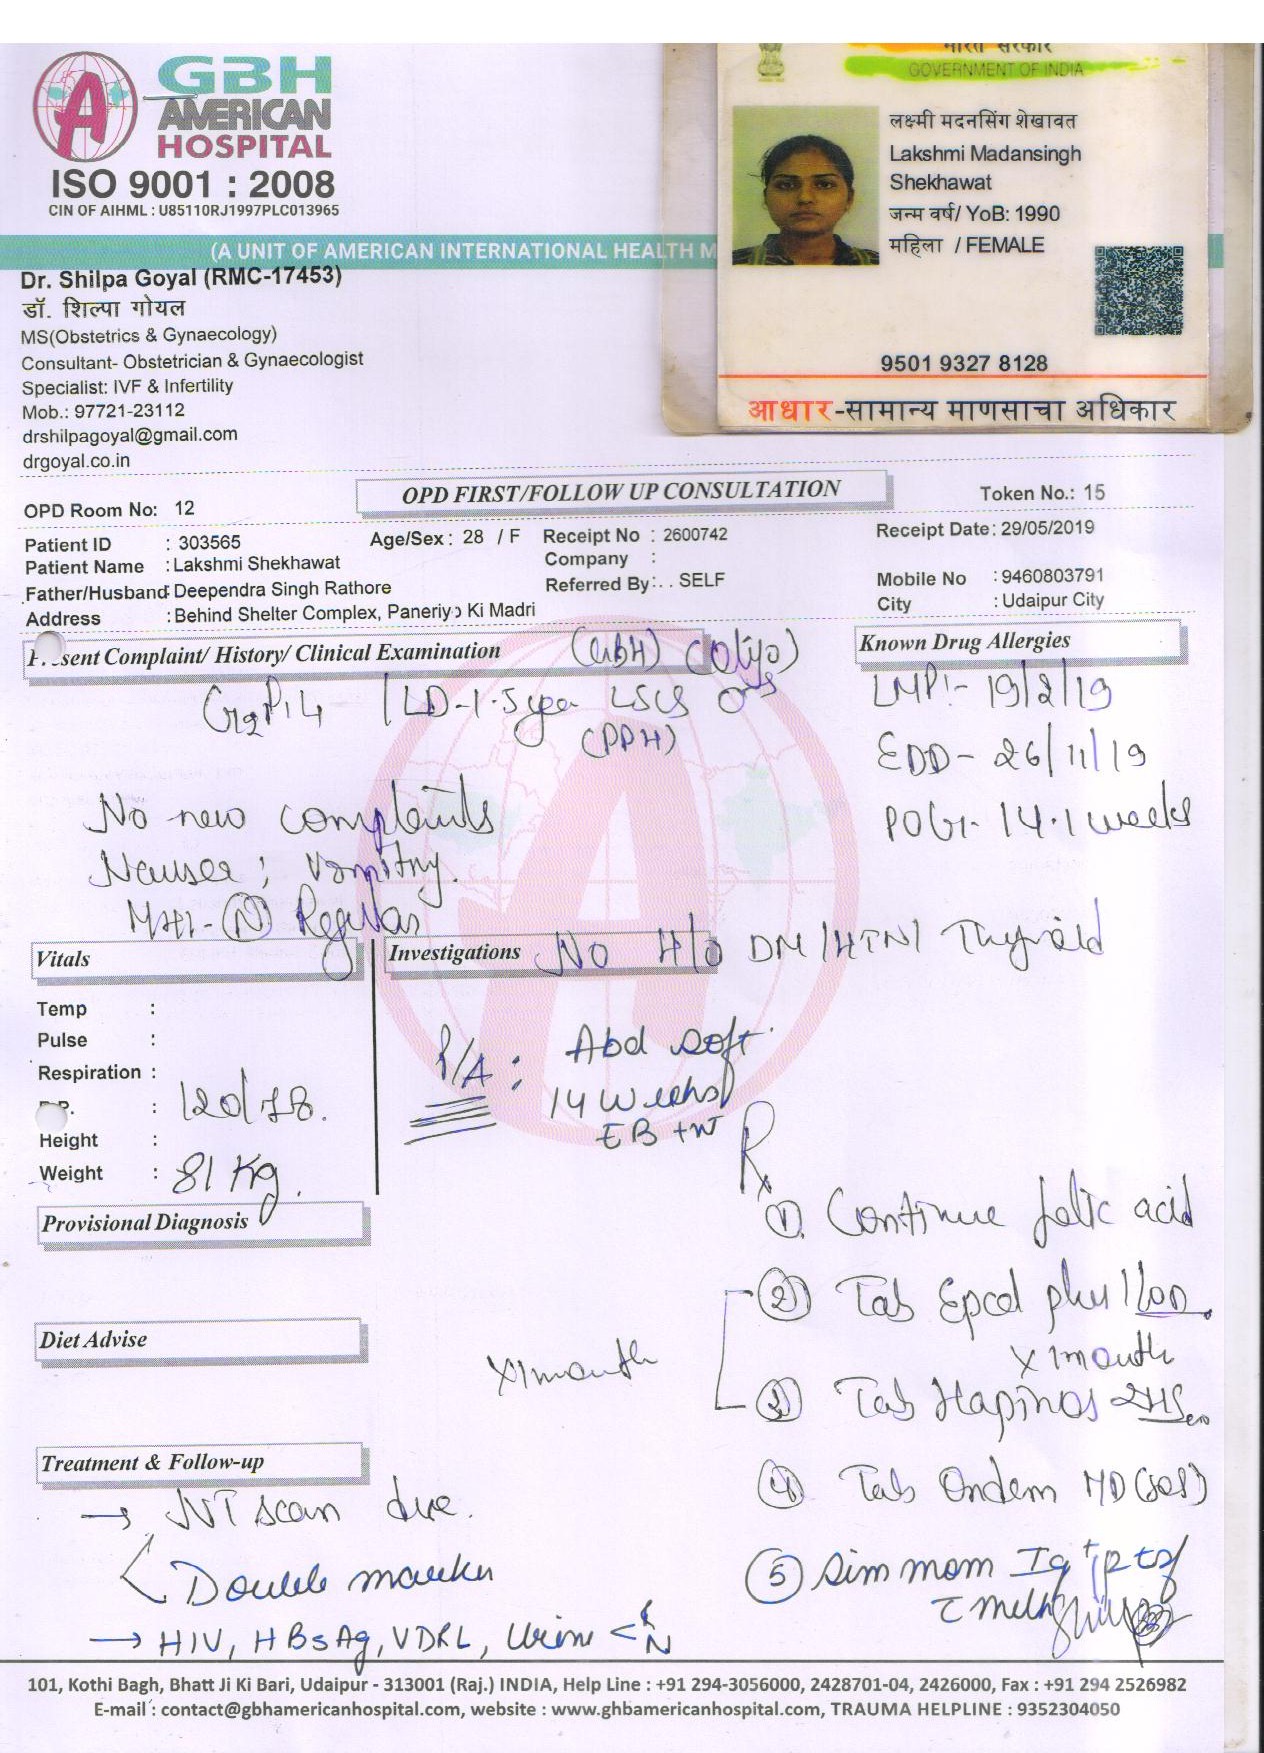 GBH
AMERICAN
HOSPITAL
ISO 9001 : 2008
CIN OF AIHML : U85110RJ1997PLC013965
भारत सरकार
GOVERNMENT OF INDIA
लक्ष्मी मदनसिंग शेखावत
Lakshmi Madansingh
Shekhawat
जन्म वर्ष/ YoB: 1990
महिला / FEMALE
9501 9327 8128
आधार-सामान्य माणसाचा अधिकार
(A UNIT OF AMERICAN INTERNATIONAL HEALTH M
Dr. Shilpa Goyal (RMC-17453)
डॉ. शिल्पा गोयल
MS(Obstetrics & Gynaecology)
Consultant- Obstetrician & Gynaecologist
Specialist: IVF & Infertility
Mob.: 97721-23112
drshilpagoyal@gmail.com
drgoyal.co.in
OPD Room No: 12
OPD FIRST/FOLLOW UP CONSULTATION
Token No.: 15
Patient ID : 303565 Age/Sex : 28 / F Receipt No : 2600742 Receipt Date : 29/05/2019
Patient Name : Lakshmi Shekhawat Company :
Father/Husband: Deependra Singh Rathore Referred By : . . SELF Mobile No : 9460803791
Address : Behind Shelter Complex, Paneriyo Ki Madri City : Udaipur City
Present Complaint/ History/ Clinical Examination (GBH)
Known Drug Allergies
G2P1L1 / LD-1.5 year LSCS
(PPH)
LMP:- 19/2/19
EDD- 26/11/19
POG- 14.1 weeks
No new complaints
Nausea; Vomiting.
M/H- (N) Regular
Vitals
Investigations No H/o DM/HTN/ Thyroid
Temp :
Pulse :
Respiration :
: 120/78.
Height :
Weight : 81 Kg.
P/A : Abd soft
14 weeks
Rx
Provisional Diagnosis
1. Continue folic acid
2) Tab Epcd plus 1/OD.
x 1 month
Diet Advise
x 1 month
3) Tab Hapinos 2HS
Treatment & Follow-up
4) Tab Ondem MD (SOS)
→ NT scan due.
Double marker
5) Sim mom
→ HIV, HBsAg, VDRL, Urine <
101, Kothi Bagh, Bhatt Ji Ki Bari, Udaipur - 313001 (Raj.) INDIA, Help Line : +91 294-3056000, 2428701-04, 2426000, Fax : +91 294 2526982
E-mail : contact@gbhamericanhospital.com, website : www.ghbamericanhospital.com, TRAUMA HELPLINE : 9352304050